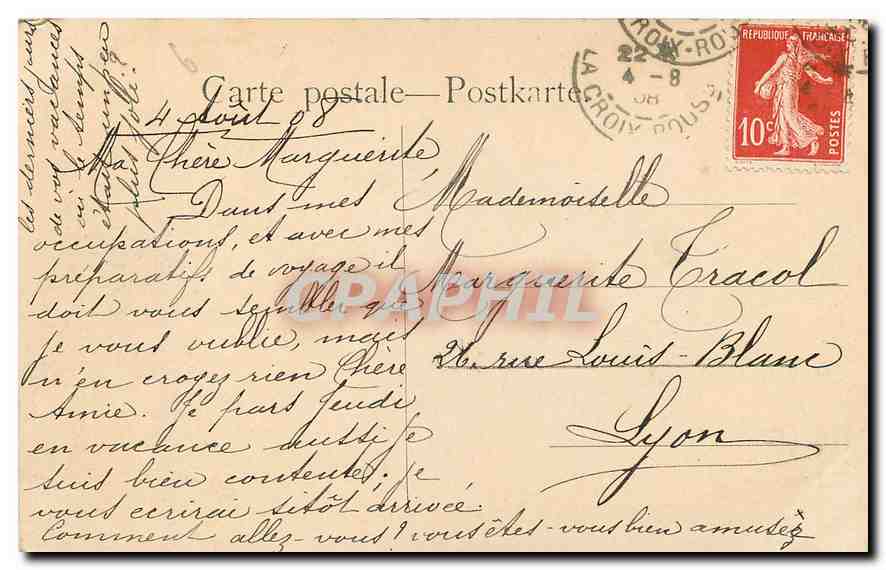 Carte postale — Postkarte
4 Août 08
Ma Chère Marguerite,
Dans mes
occupations, et avec mes
préparatifs de voyage il
doit vous sembler que
je vous oublie, mais
n'en croyez rien Chère
Amie. Je pars Jeudi
en vacance aussi je
suis bien contente; je
vous ecrirai sitôt arrivée.
Comment allez-vous? vous êtes-vous bien amusez
les derniers jours
de vos vacances
où le temps
était un peu
plus joli?
Mademoiselle
Marguerite Tracol
26, rue Louis-Blanc
Lyon
RÉPUBLIQUE FRANÇAISE
10c
POSTES
22
4 - 8
08
LA CROIX-ROUSS
ROIX-ROU
CRAPHIL